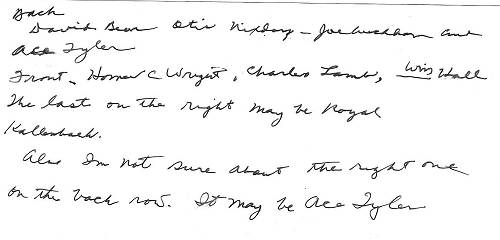 Back
David Bear Otis - Joe and
Ace Tyler
Front - Homer C Wright, Charles Lamb, Wins Hall
The last on the right may be Royal
Kallenbach.
Also Im not sure about the right one
on the back row. It may be Ace Tyler